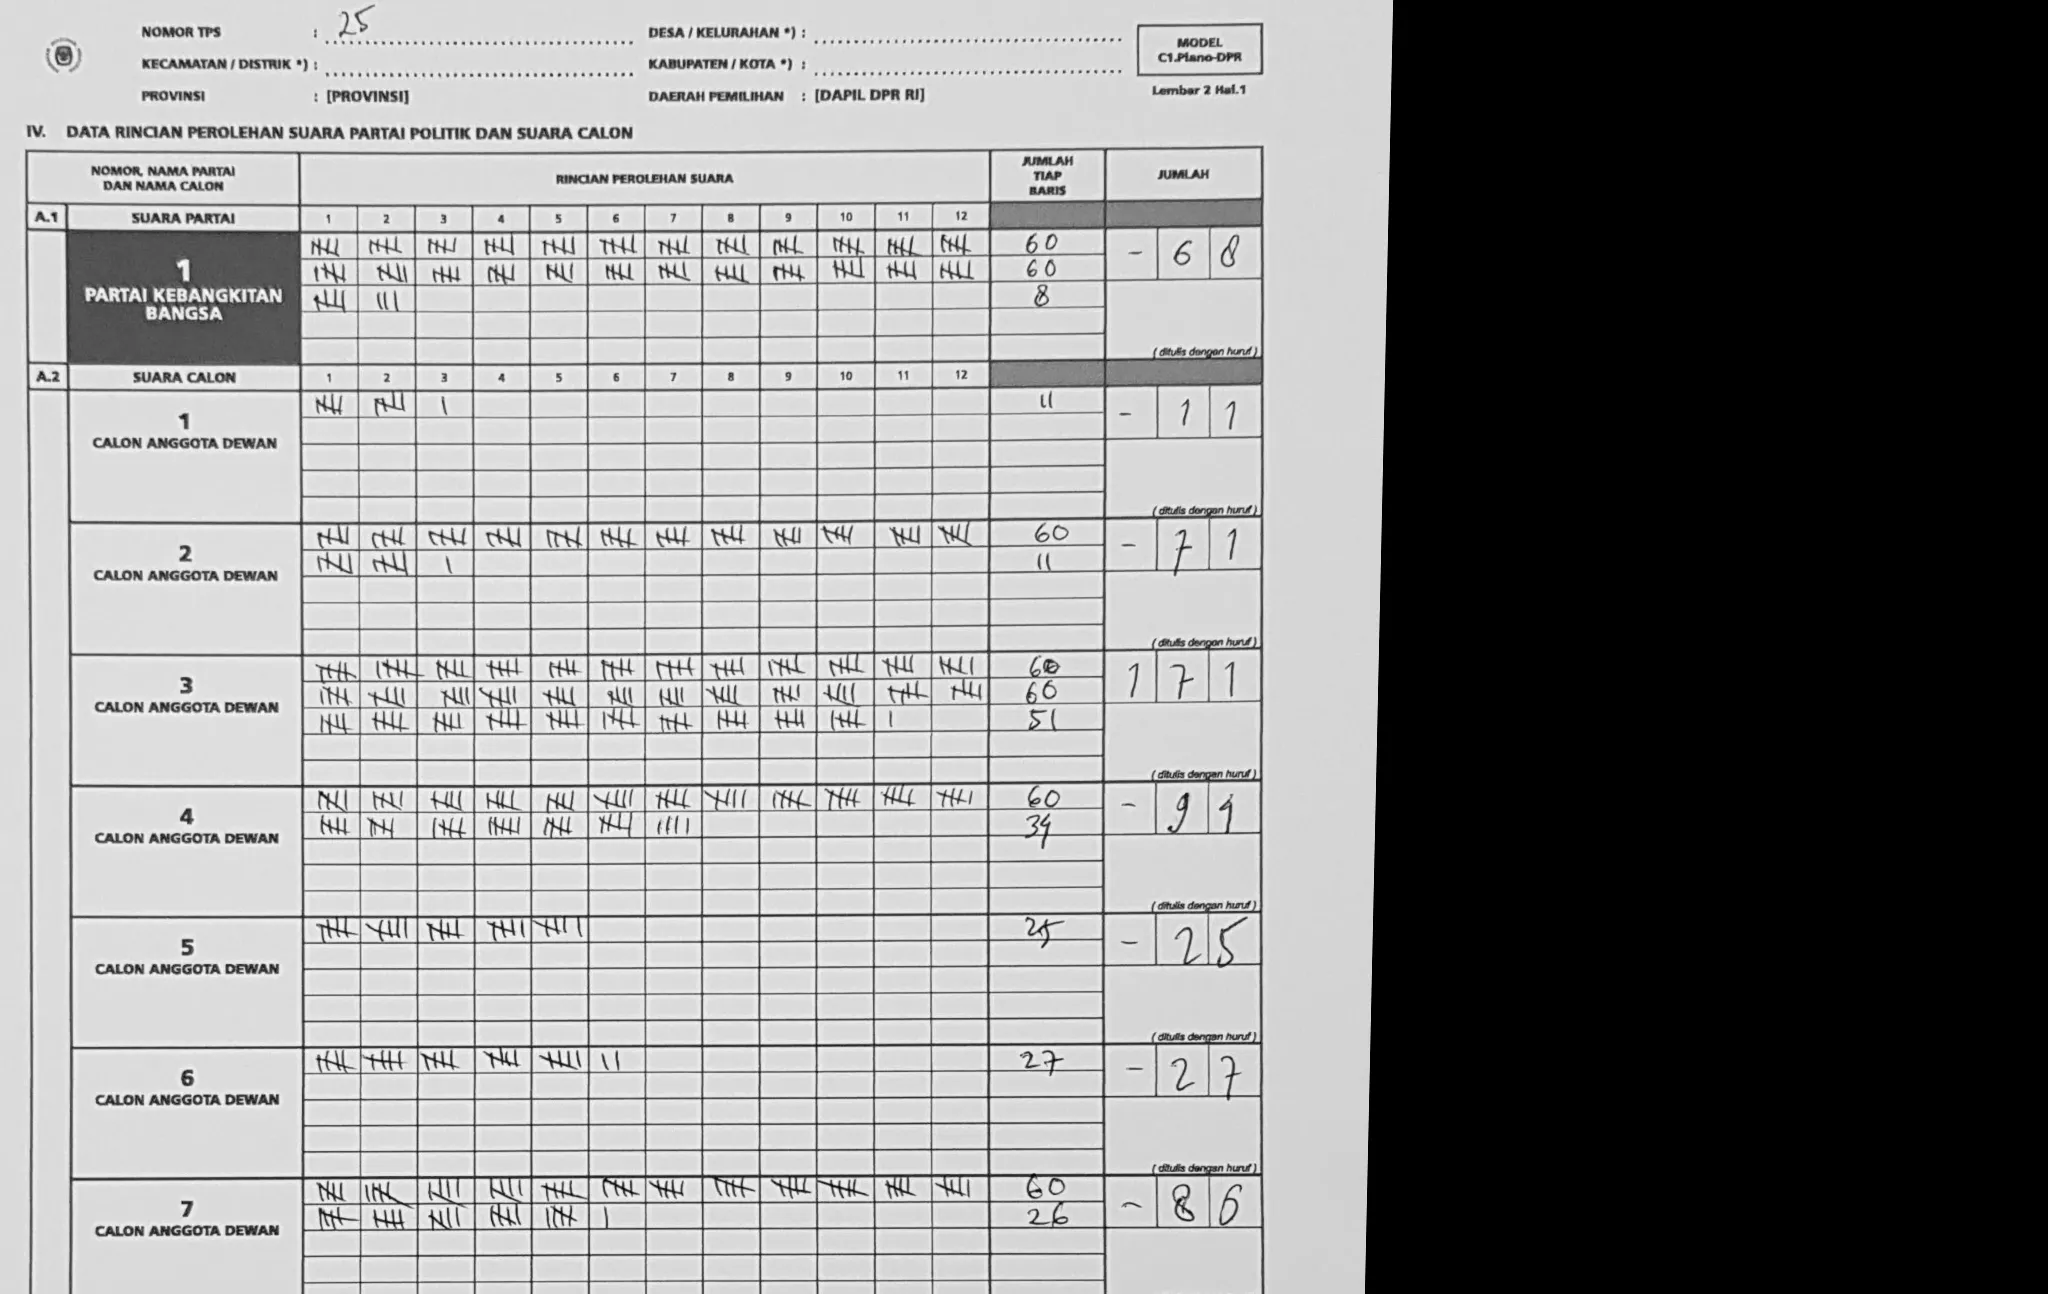 NOMOR TPS : 25 DESA / KELURAHAN *) :
MODEL
C1.Plano-DPR
KECAMATAN / DISTRIK *) : KABUPATEN / KOTA *) :
PROVINSI : [PROVINSI] DAERAH PEMILIHAN : [DAPIL DPR RI]
Lembar 2 Hal.1
IV. DATA RINCIAN PEROLEHAN SUARA PARTAI POLITIK DAN SUARA CALON
NOMOR, NAMA PARTAI
DAN NAMA CALON
RINCIAN PEROLEHAN SUARA
JUMLAH
TIAP
BARIS
JUMLAH
A.1 SUARA PARTAI 1 2 3 4 5 6 7 8 9 10 11 12
1
PARTAI KEBANGKITAN
BANGSA
60
60
8
- 6 8
(ditulis dengan huruf)
A.2 SUARA CALON 1 2 3 4 5 6 7 8 9 10 11 12
1
CALON ANGGOTA DEWAN
11
- 1 1
(ditulis dengan huruf)
2
CALON ANGGOTA DEWAN
60
11
- 7 1
(ditulis dengan huruf)
3
CALON ANGGOTA DEWAN
60
60
51
1 7 1
(ditulis dengan huruf)
4
CALON ANGGOTA DEWAN
60
34
- 9 4
(ditulis dengan huruf)
5
CALON ANGGOTA DEWAN
25
- 2 5
(ditulis dengan huruf)
6
CALON ANGGOTA DEWAN
27
- 2 7
(ditulis dengan huruf)
7
CALON ANGGOTA DEWAN
60
26
- 8 6